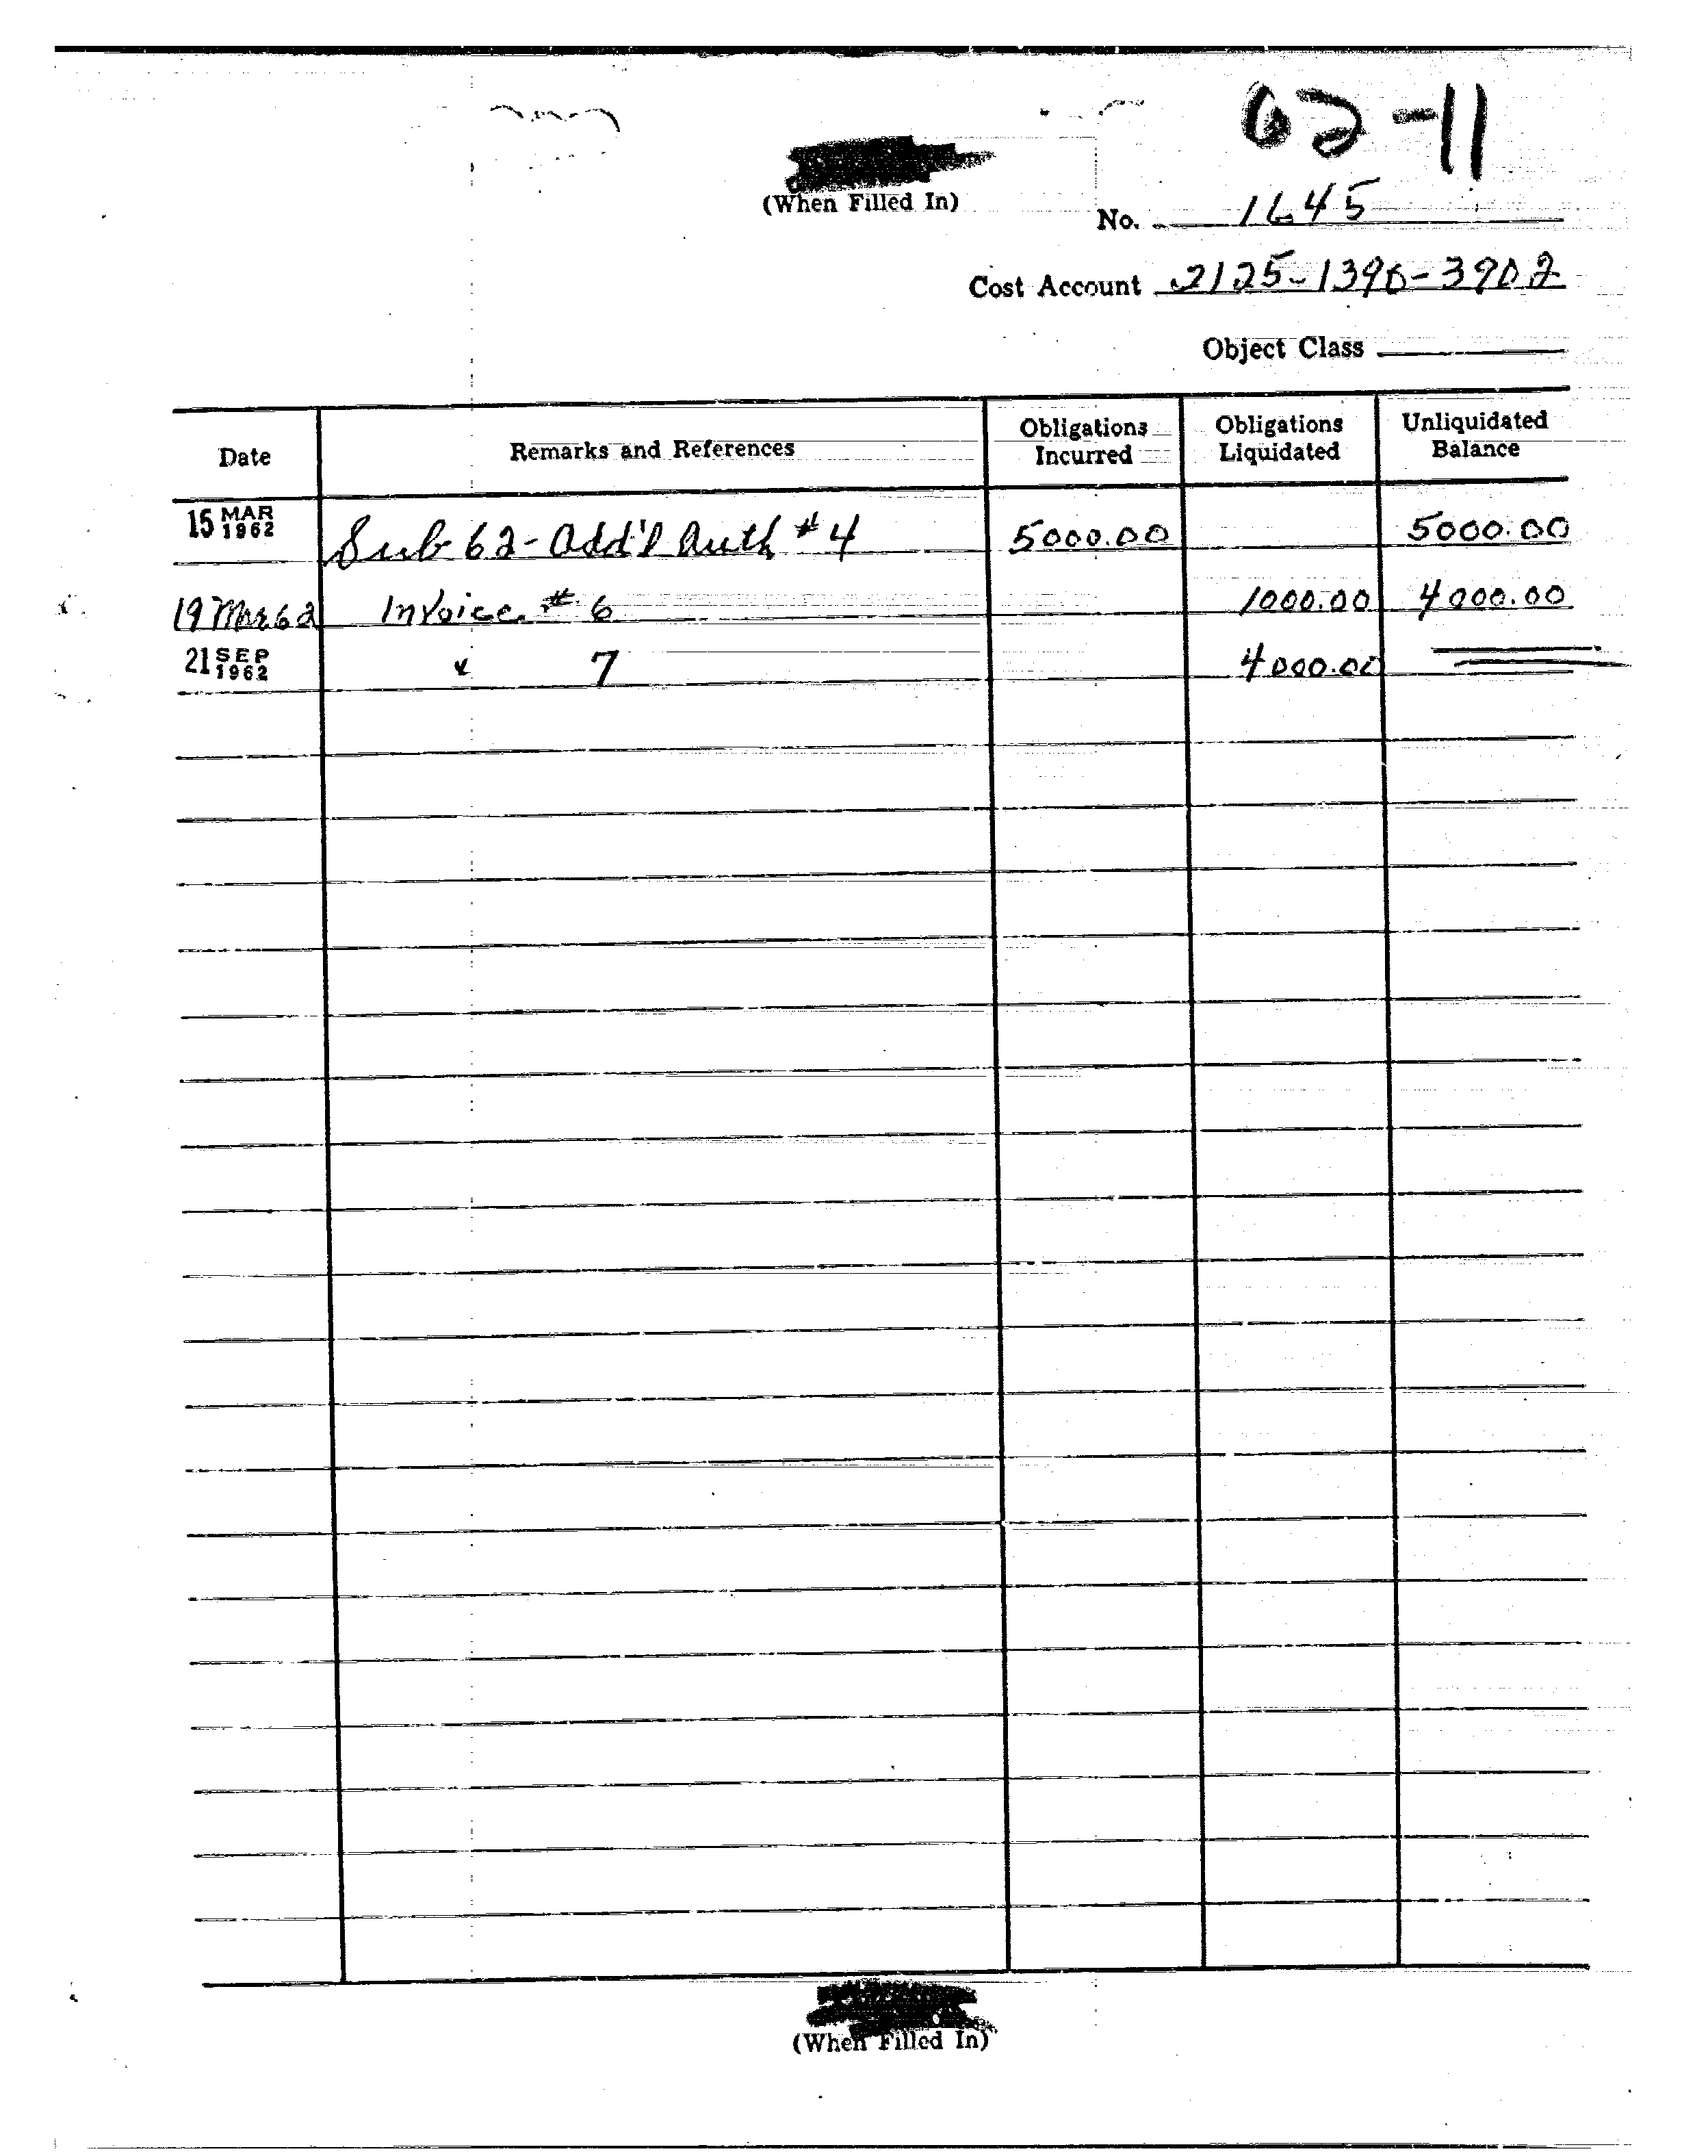 62-11
(When Filled In)
No. 1645
Cost Account 2125-1390-3902
Object Class
Date Remarks and References Obligations Incurred Obligations Liquidated Unliquidated Balance
15 MAR 1962 Sub 62 - Add'l Auth #4 5000.00 5000.00
19 Mar 62 Invoice #6 1000.00 4000.00
21 SEP 1962 " 7 4000.00
(When Filled In)